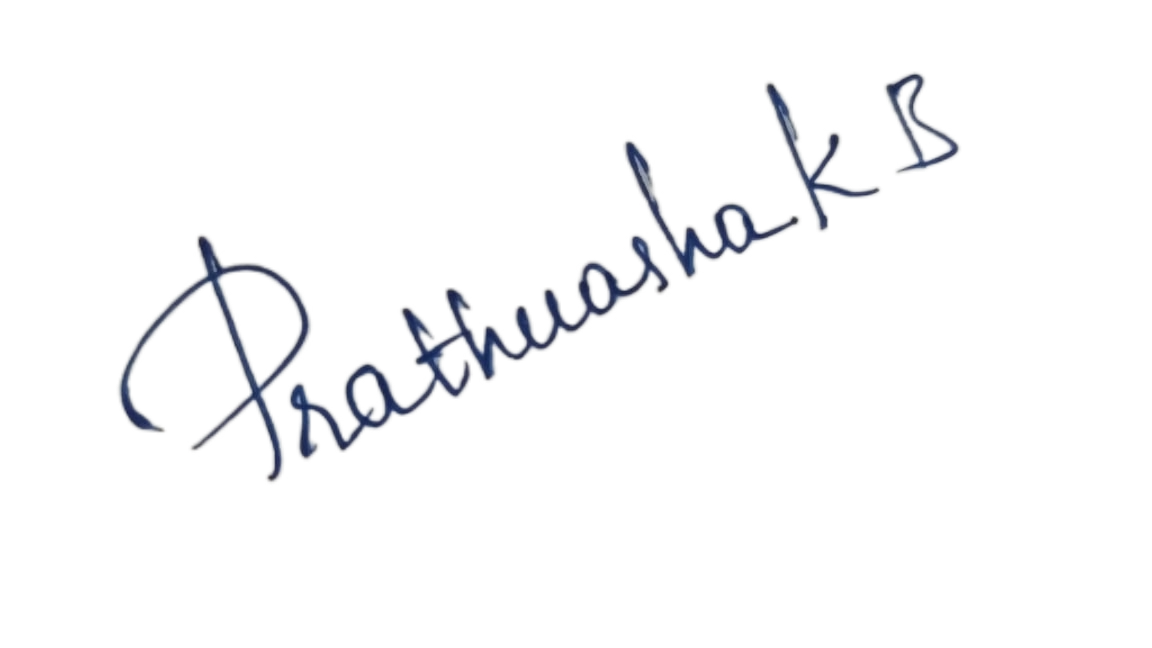 Prathuasha K B